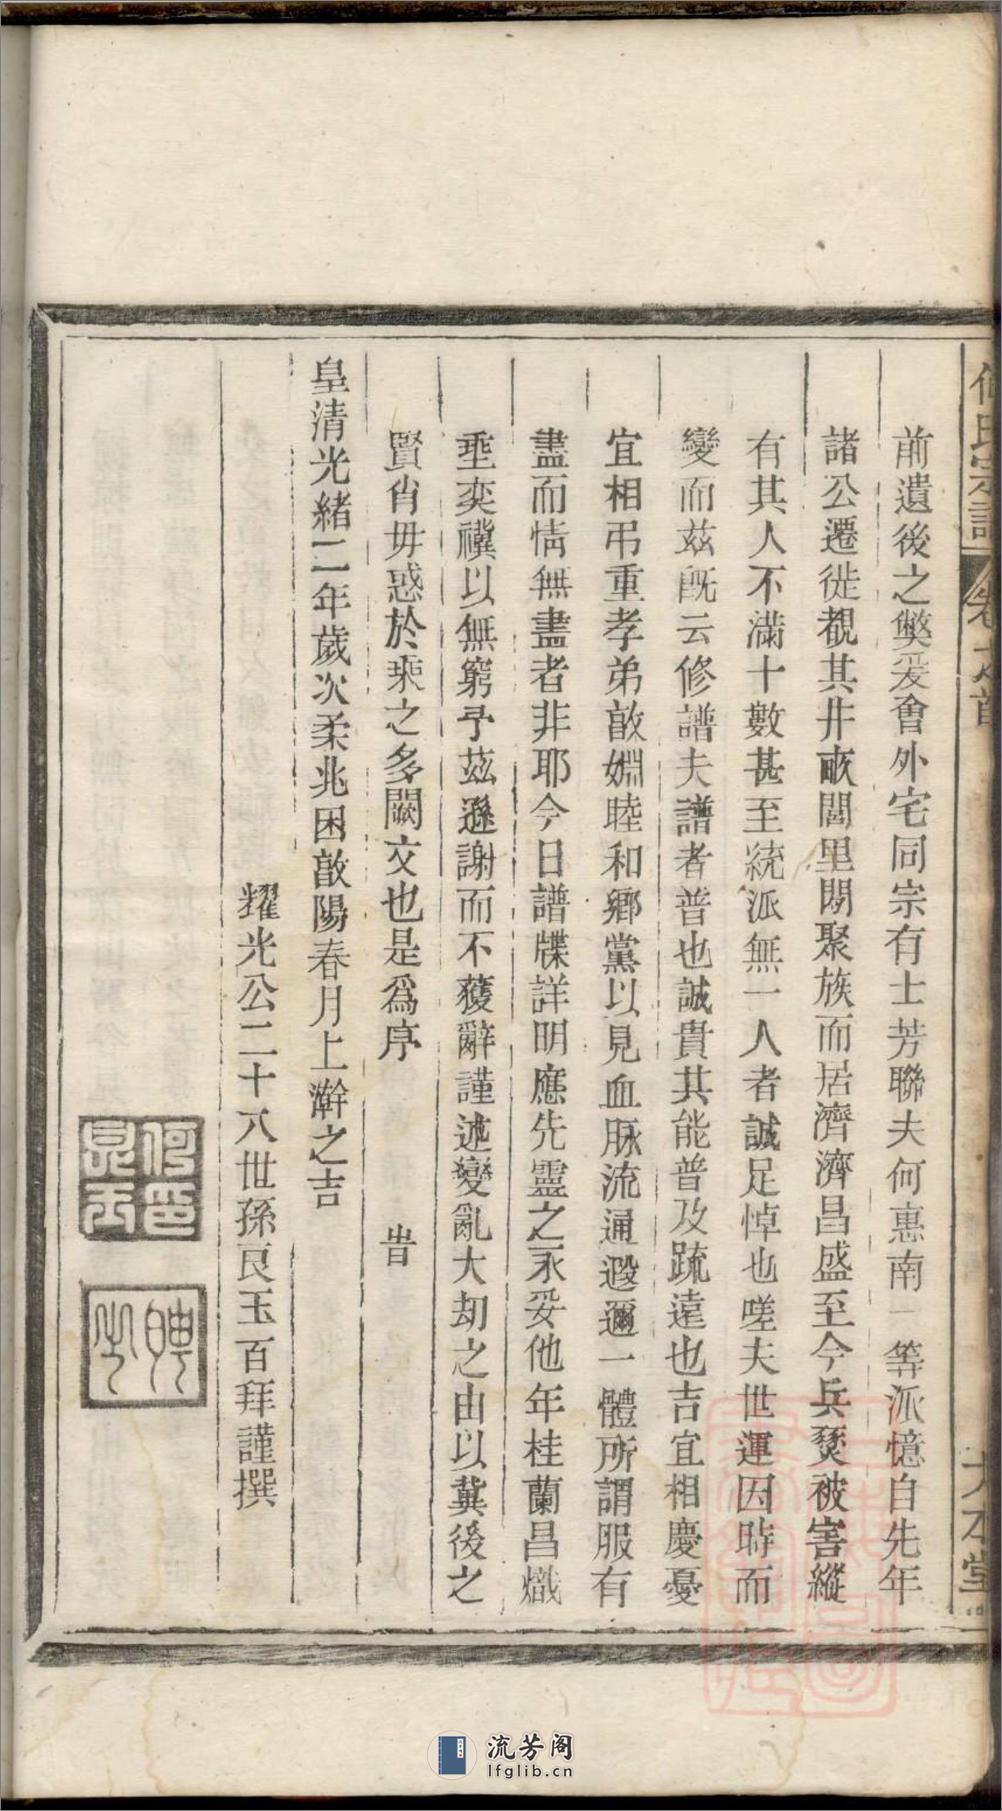 何氏宗譜
卷之首
大本堂
前遺後之弊爰會外宅同宗有士芳聯夫何惠南一等派憶自先年
諸公遷徙覩其井畝閭里閱聚族而居濟濟昌盛至今兵燹被害縱
有其人不滿十數甚至統派無一人者誠足悼也嗟夫世運因時而
變而茲旣云修譜夫譜者普也誠貴其能普及疏遠也吉宜相慶憂
宜相弔重孝弟敦婣睦和鄉黨以見血脉流通遐邇一體所謂服有
盡而情無盡者非耶今日譜牒詳明應先靈之永妥他年桂蘭昌熾
埀奕禩以無窮予茲遜謝而不獲辭謹述變亂大刼之由以冀後之
賢肖毋惑於乘之多闕文也是爲序
旹
皇清光緒二年歲次柔兆困敦陽春月上澣之吉
耀光公二十八世孫良玉百拜謹撰
流芳阁
lfglib.cn